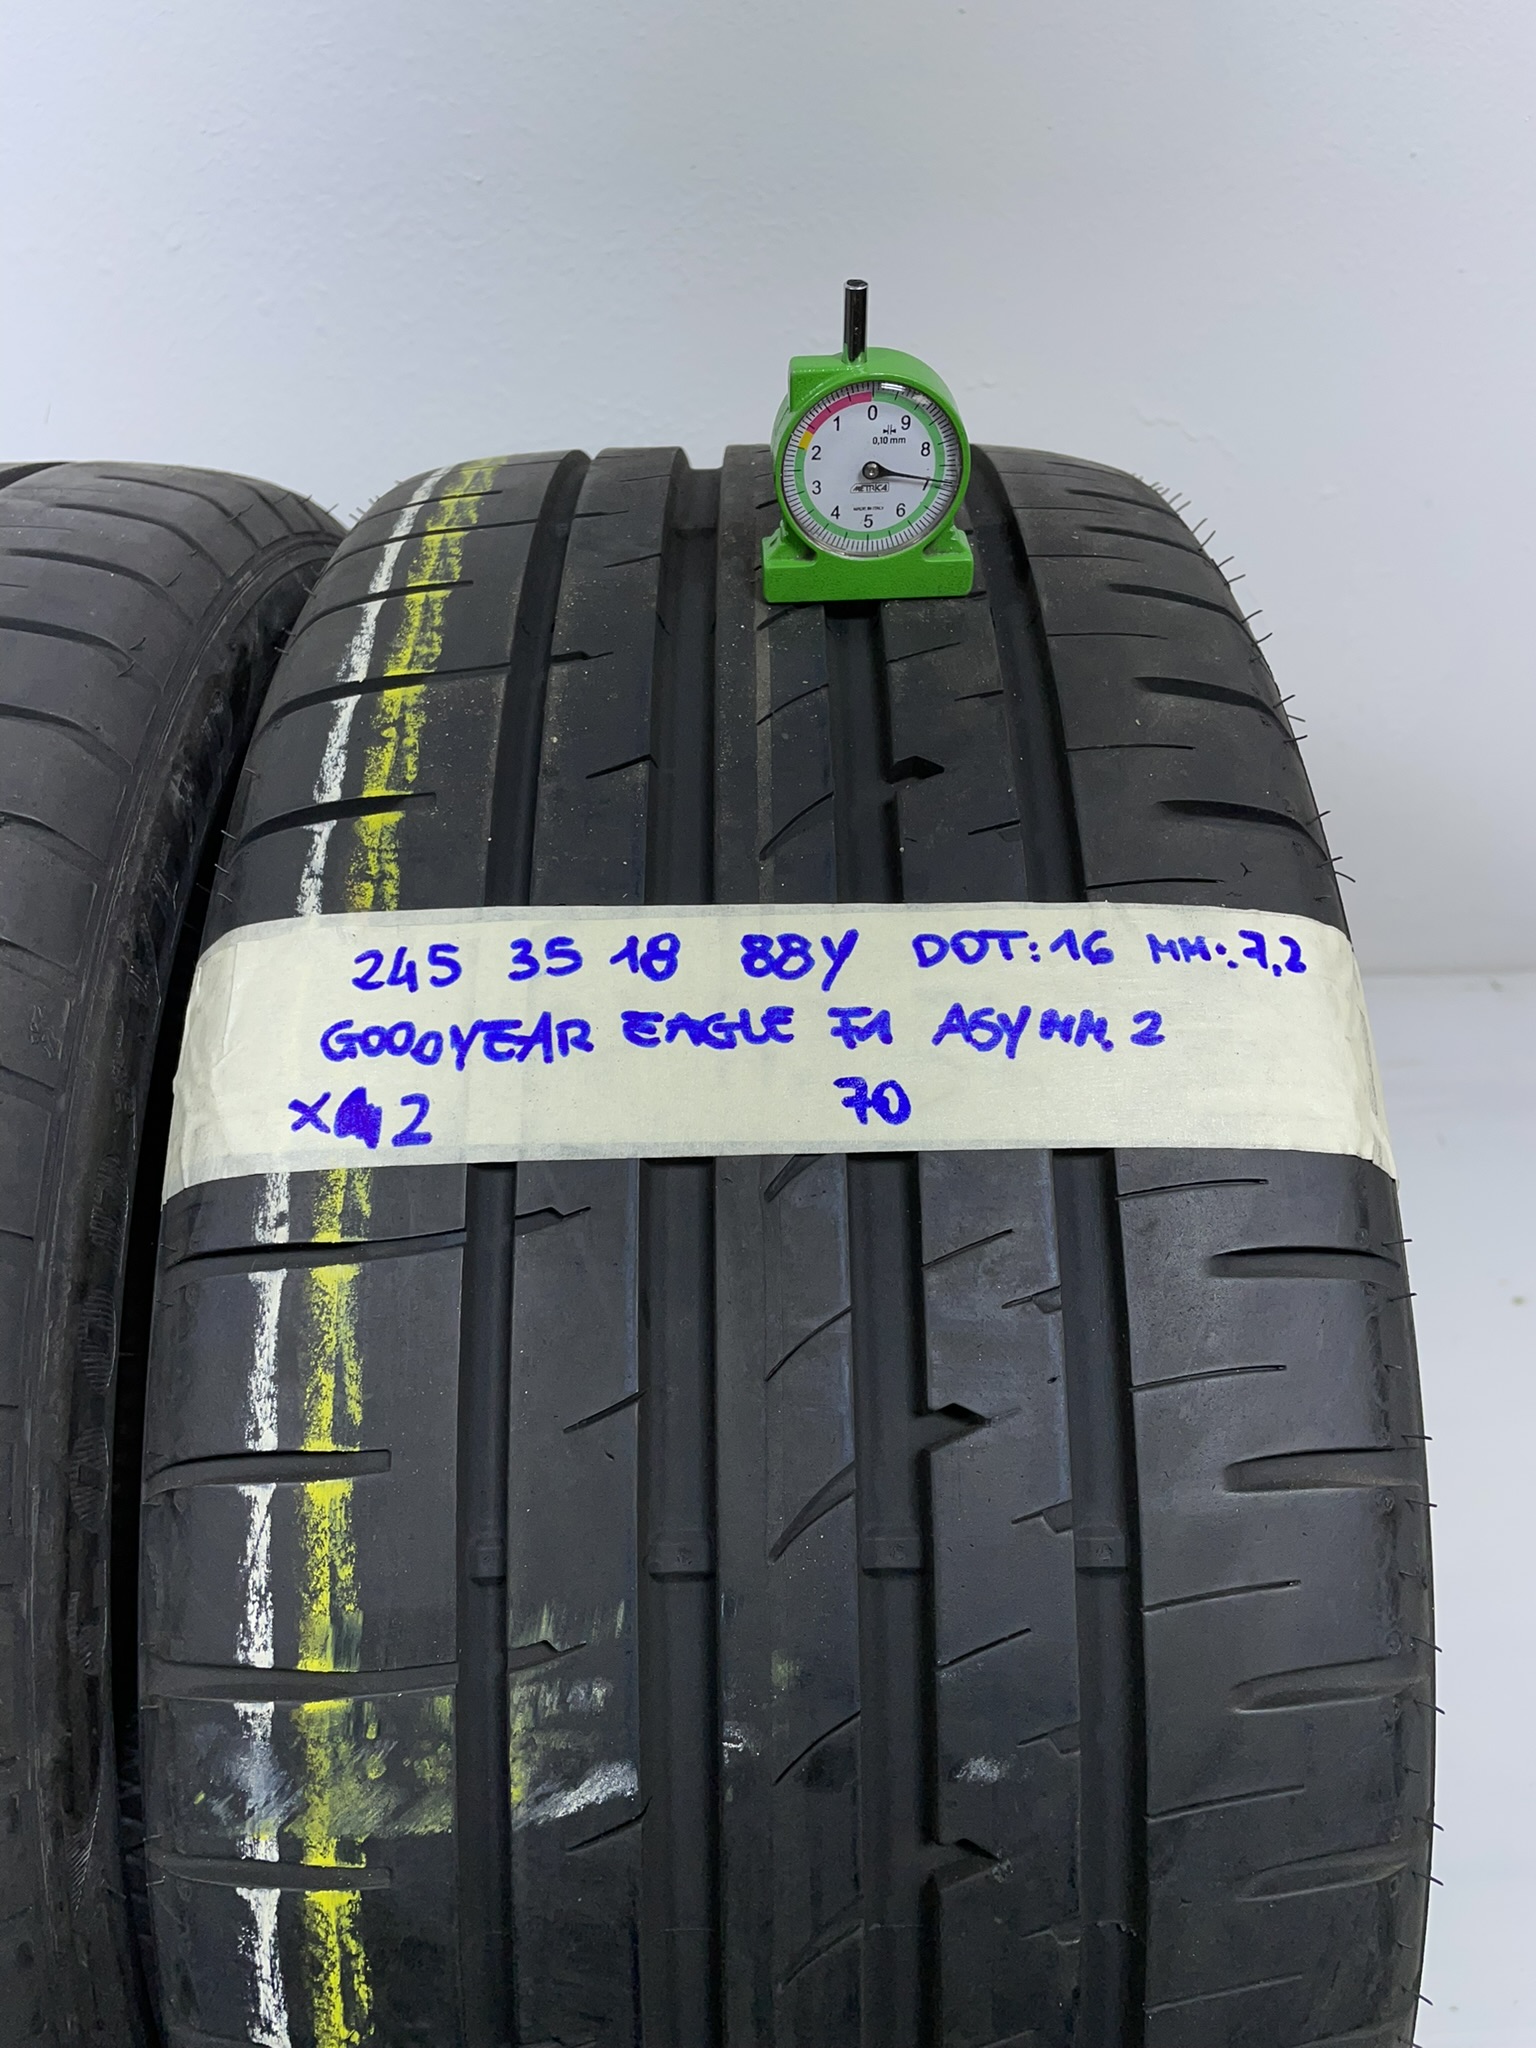 0
1 9
0,10 mm
2 8
3 7
METRICA
MADE IN ITALY
4 6
5
245 35 18 88Y DOT:16 MM:7,2
GOODYEAR EAGLE F1 ASYMM. 2
X 2 70